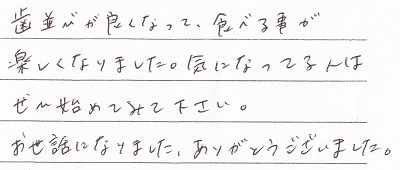 歯並びが良くなって、食べる事が
楽しくなりました。気になってる人は
ぜひ始めてみて下さい。
お世話になりました、ありがとうございました。